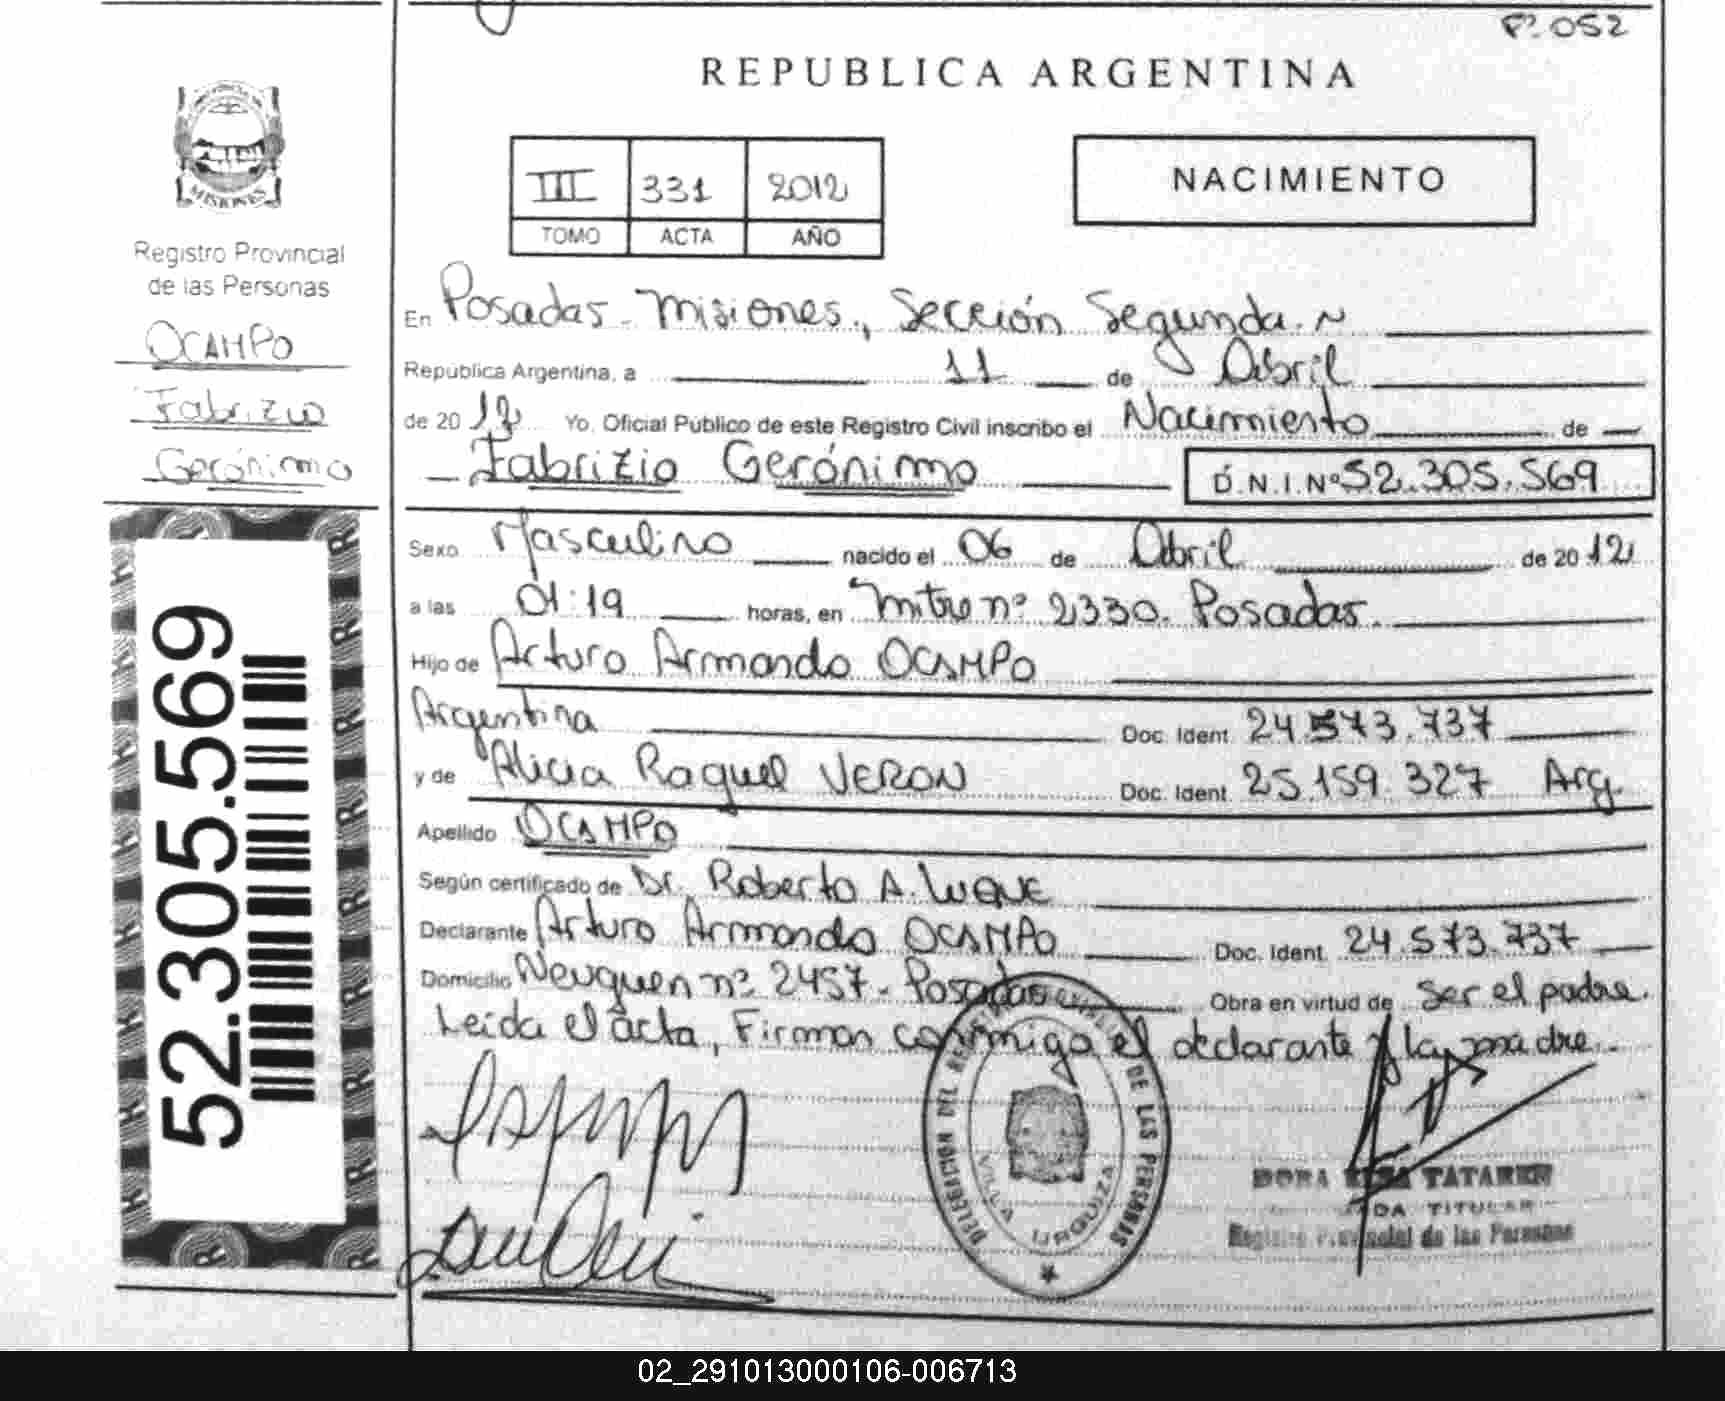 Fº 052
REPUBLICA ARGENTINA
III 331 2012
TOMO ACTA AÑO
NACIMIENTO
MISIONES
Registro Provincial
de las Personas
OCAMPO
Fabrizio
Gerónimo
52.305.569
En Posadas - Misiones, Sección Segunda. ~
República Argentina, a 11 de Abril
de 2012 Yo, Oficial Público de este Registro Civil inscribo el Nacimiento de
Fabrizio Gerónimo D.N.I. Nº 52.305.569
Sexo Masculino nacido el 06 de Abril de 2012
a las 01:19 horas, en Mitre nº 2330. Posadas.
Hijo de Arturo Armando OCAMPO
Argentina Doc. Ident. 24.573.737
y de Alicia Raquel VERON Doc. Ident. 25.159.327 Arg.
Apellido OCAMPO
Según certificado de Dr. Roberto A. LUQUE
Declarante Arturo Armando OCAMPO Doc. Ident. 24.573.737
Domicilio Neuquen nº 2457 - Posadas Obra en virtud de ser el padre.
Leída el acta, Firman conmigo el declarante y la madre.
DELEGACION DEL REGISTRO DE LAS PERSONAS
VILLA URQUIZA
DORA TATAREN
TITULAR
Registro Provincial de las Personas
02_291013000106-006713